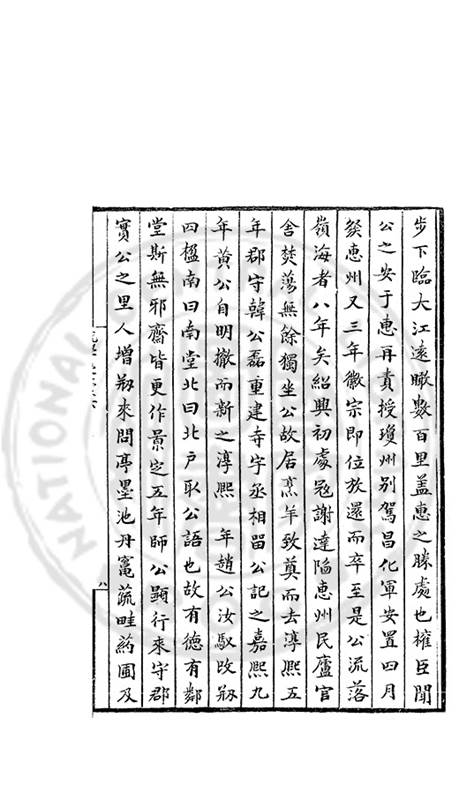 步下臨大江遠瞰數百里盖惠之勝處也權臣聞
公之安于惠再責授瓊州别駕昌化軍安置四月
發惠州又三年徽宗即位放還而卒至是公流落
嶺海者八年矣紹興初處冦謝達陥惠州民廬官
舍焚蕩無餘獨坐公故居烹羊致奠而去淳熙五
年郡守韓公磊重建寺宇丞相留公記之嘉熙九
年黄公自明撤而新之淳熙 年趙公汝馭改剏
曰楹南曰南堂北曰北户取公語也故有徳有鄰
堂斯無邪齋皆更作景定五年師公顯行來守郡
實公之里人増剏來問亭墨池丹竈蔬畦葯圃及
八
NATIONAL